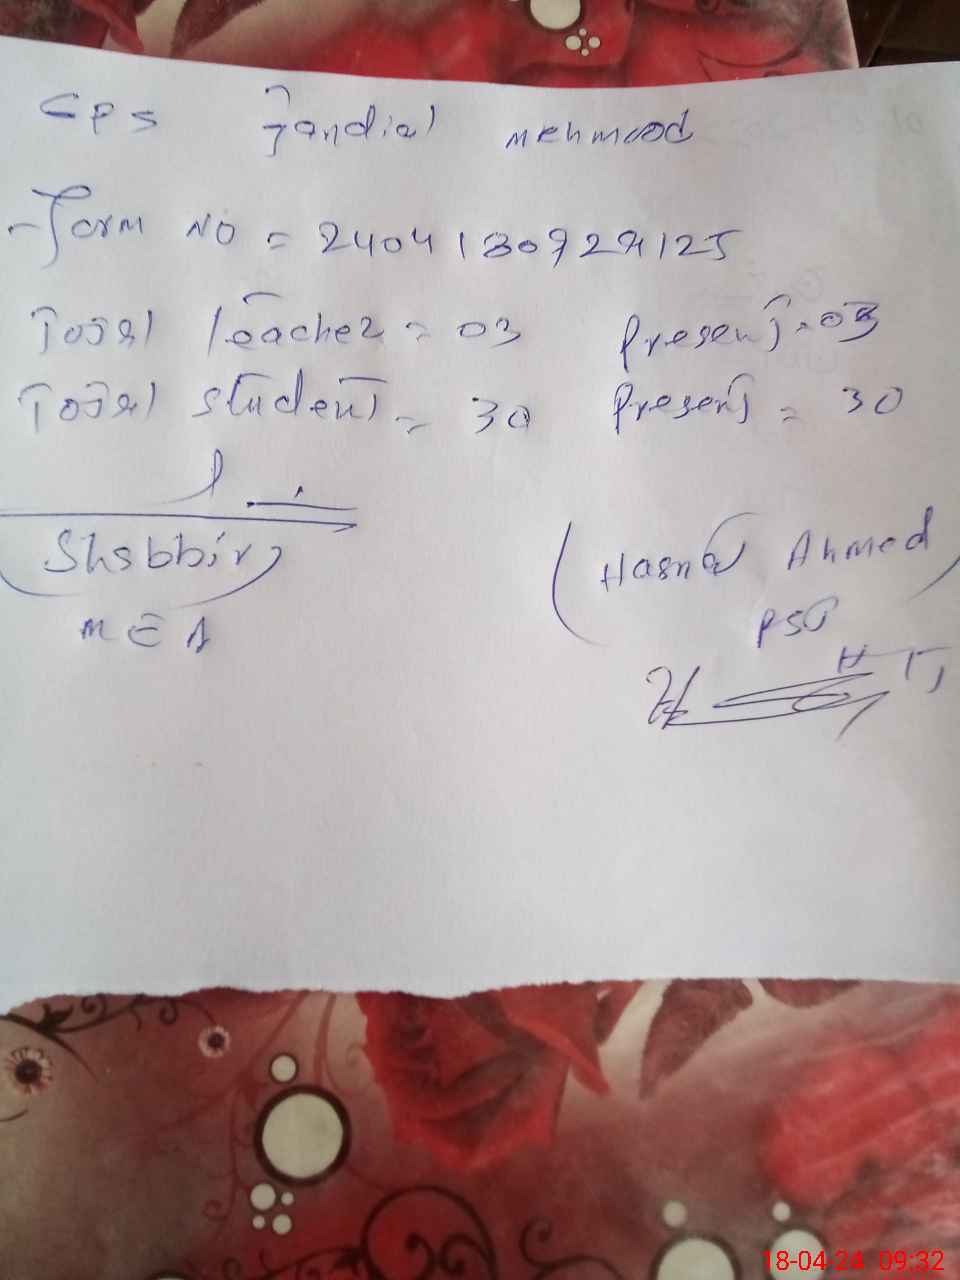 GPS Jandial mehmood
Form NO = 2404180929125
Total Teacher = 03 Present = 03
Total Student = 30 Present = 30
Shabbir
MEA
Ahmed
PST
HT
18-04-24 09:32